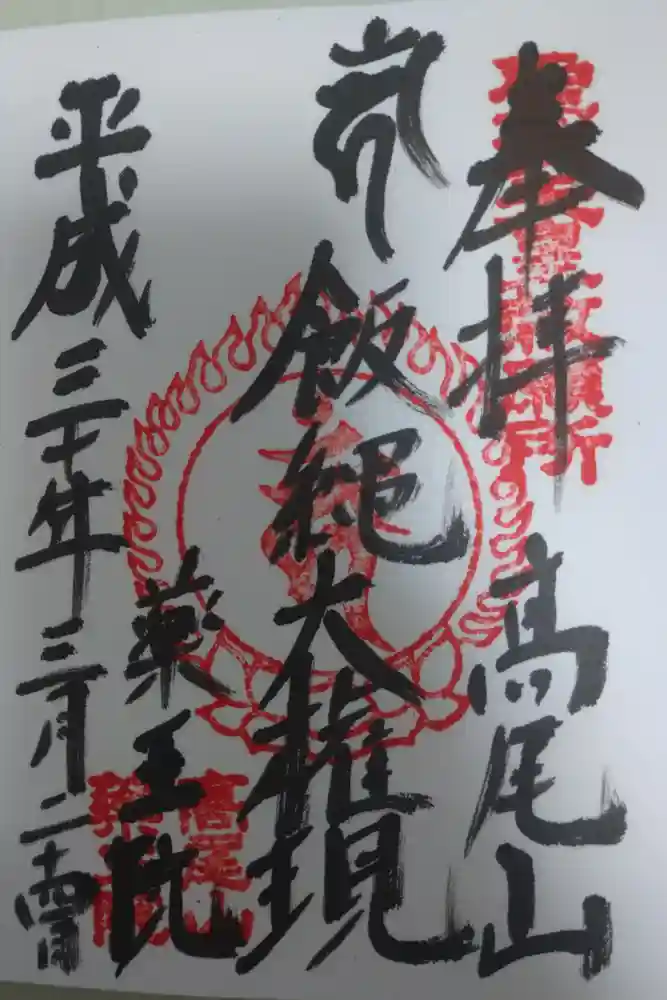 奉拝 高尾山
飯縄大権現
薬王院
平成三十年三月二十四日
高尾山